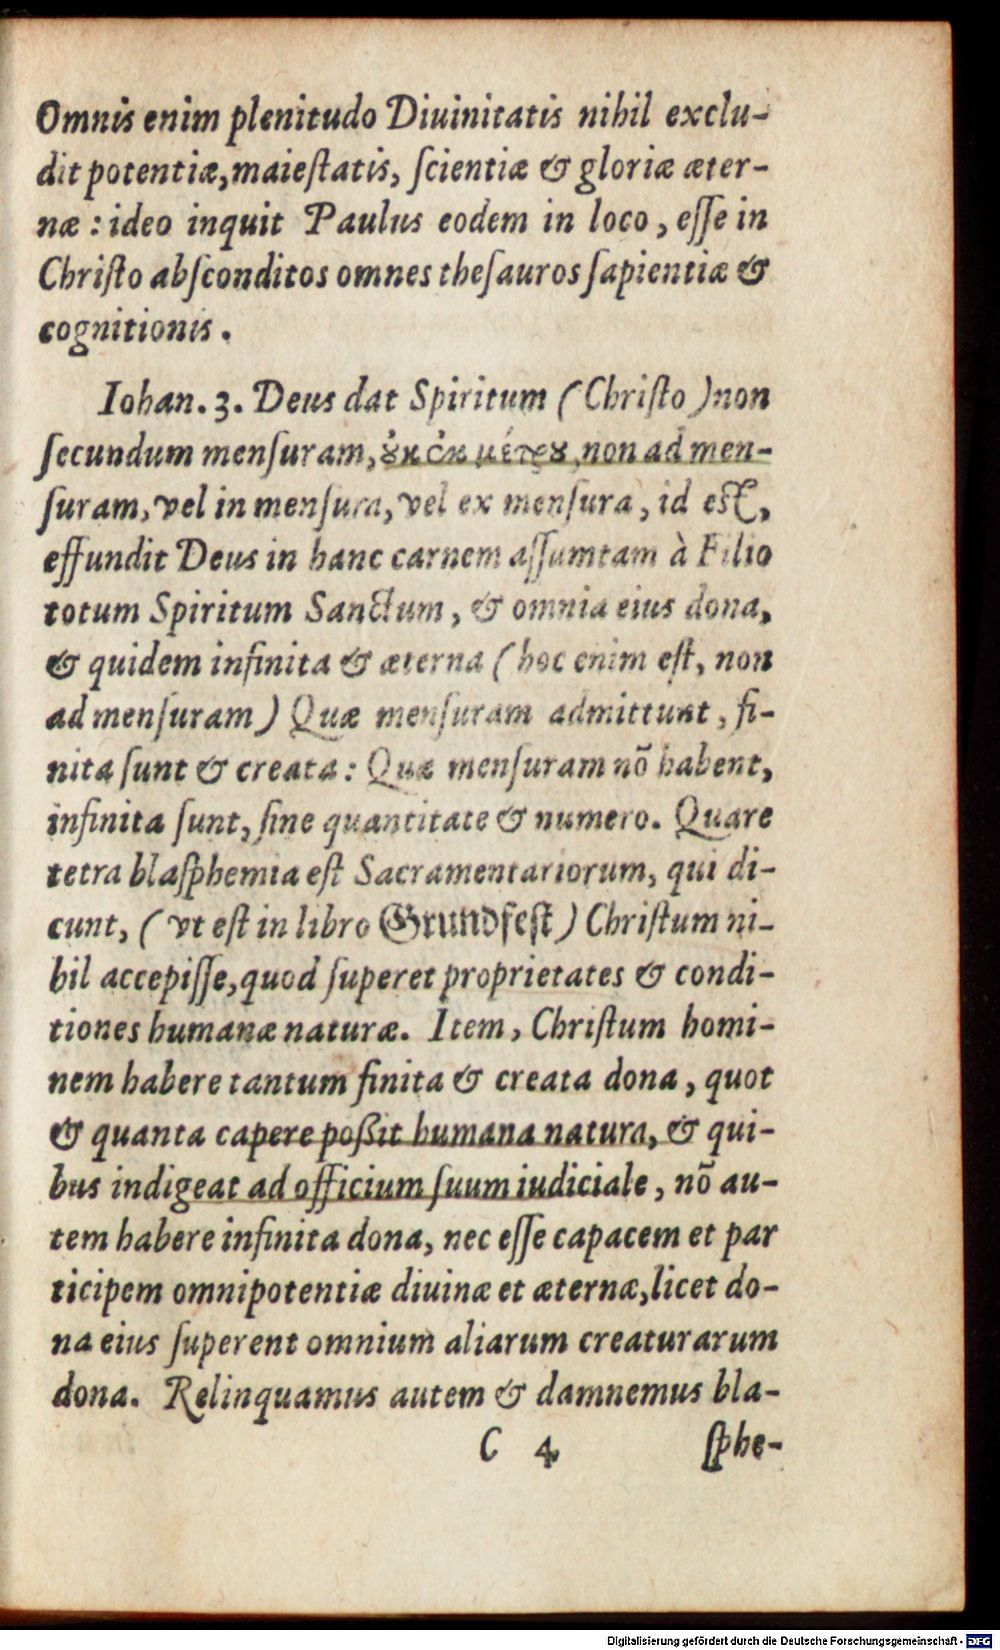 Omnis enim plenitudo Diuinitatis nihil exclu-
dit potentiæ, maiestatis, scientiæ & gloriæ æter-
næ: ideo inquit Paulus eodem in loco, esse in
Christo absconditos omnes thesauros sapientiæ &
cognitionis.
Iohan. 3. Deus dat Spiritum (Christo) non
secundum mensuram, ȣκ ἐκ μέτρȣ, non ad men-
suram, vel in mensura, vel ex mensura, id est,
effundit Deus in hanc carnem assumtam à Filio
totum Spiritum Sanctum, & omnia eius dona,
& quidem infinita & æterna (hoc enim est, non
ad mensuram) Quæ mensuram admittunt, fi-
nita sunt & creata: Quæ mensuram nõ habent,
infinita sunt, sine quantitate & numero. Quare
tetra blasphemia est Sacramentariorum, qui di-
cunt, (vt est in libro Grundfest) Christum ni-
hil accepisse, quod superet proprietates & condi-
tiones humanæ naturæ. Item, Christum homi-
nem habere tantum finita & creata dona, quot
& quanta capere poßit humana natura, & qui-
bus indigeat ad officium suum iudiciale, nõ au-
tem habere infinita dona, nec esse capacem et par
ticipem omnipotentiæ diuinæ et æternæ, licet do-
na eius superent omnium aliarum creaturarum
dona. Relinquamus autem & damnemus bla-
C 4 sphe-
Digitalisierung gefördert durch die Deutsche Forschungsgemeinschaft - DFG